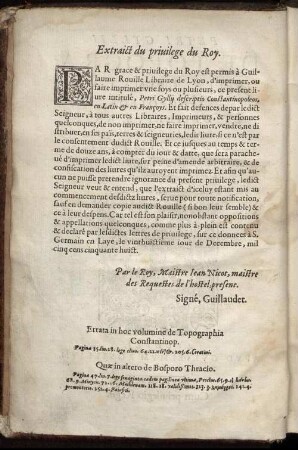 Extraict du priuilege du Roy.
PAR grace & priuilege du Roy est permis à Guil-
laume Rouille Libraire de Lyon, d'imprimer, ou
faire imprimer vne foys ou plusieurs, ce present
liure intitulé, Petri Gyllij descriptio Constantinopoleos,
en Latin & en Françoys. Et fait defences depar ledict
Seigneur, à tous autres Libraires, Imprimeurs, & personnes
quelconques, de non imprimer, ne faire imprimer, vendre, ne di
stribuer, en ses païs, terres & seigneuries, ledit liure: si ce n'est
par le consentement dudict Rouille. Et ce iusques au temps & ter-
me de douze ans, à compter du iour & datte, que sera parache-
ué d'imprimer ledict liure, sur peine d'amende arbitraire, & de
confiscation des liures qu'ils auroyent imprimez. Et afin qu'au-
cun ne puisse pretendre ignorance du present priuilege, ledict
Seigneur veut & entend, que l'extraict d'iceluy estant mis au
commencement desdictz liures, serue pour toute notification,
sauf en demander copie audict Rouille (si bon leur semble) &
ce à leur despens. Car tel est son plaisir, nonobstant oppositions
& appellations quelconques, comme plus à plein est contenu
& declaré par lesdictes lettres de priuilege, sur ce données à S.
Germain en Laye, le vinthuitiesme iour de Decembre, mil
cinq cens cinquante huict.
Par le Roy, Maistre Iean Nicot, maistre
des Requestes de l'hostel, present.
Signé, Guillaudet.
Errata in hoc volumine de Topographia
Constantinop.
Quæ in altero de Bosporo Thracio.